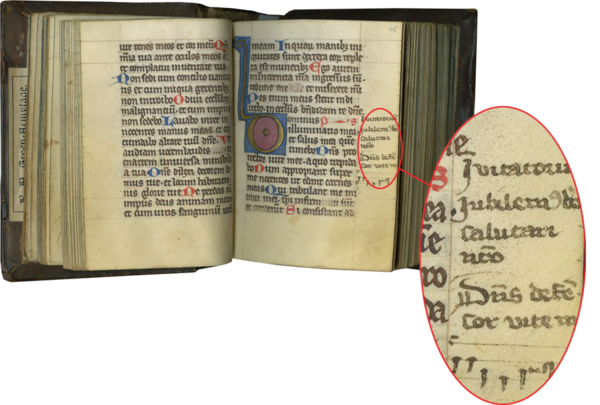 ure renes meos et cor meū Qm̄
mia tua ante oculos meos ē
et complacui in veritate tua
Non sedi cum concilio vanita
tis et cum iniqua gerentibz
non introibo Odivi eccliam
malignantiū et cum impiis
non sedebo Lavabo inter in
nocentes manus meas et cir
cumdabo altare tuū dnē Ut
audiam vocem laudis et
enarrem universa mirabili
a tua Dñe dilexi decorem do
mus tue et locum habitatio
nis glorie tue Ne perdas cū
impiis deus animam meā
et cum viris sanguinū vitā
meam In quorū manibz ini
quitates sunt dextera eor reple
ta est muneribz Ego autem
innocentia mea ingressus su
redime me et miserere mei
Pes meus stetit in di
recto in ecclesiis bn̄dicam te dn̄e
Dominus
illuminatio mea
et salus mea que
timebo Dn̄s pro
tector vite mee a quo trepida
bo Dum appropiant super
me nocentes ut edant carnes
meas Qui tribulant me ini
mici mei ipi infirmati sūt
et ceciderūt Si consistant ad
Invitatoriū
Jubilemꝯ deo
salutari
nr̄o
Dn̄s defē
sor vite m